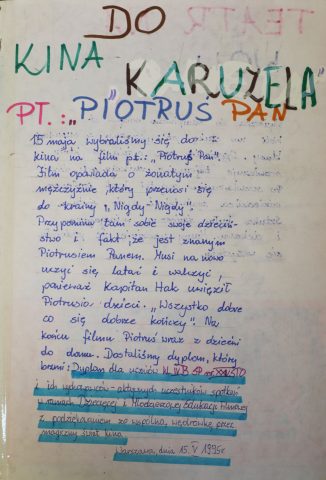 DO
KINA „KARUZELA"
PT.: „PIOTRUŚ PAN
15 maja wybraliśmy się do
kina na film pt. „Piotruś Pan".
Film opowiada o żonatym
mężczyźnie który przenosi się
do krainy „Nigdy-Nigdy".
Przypomina tam sobie swoje dzieciń-
stwo i fakt że jest znanym
Piotrusiem Panem. Musi na nowo
uczyć się latać i walczyć,
ponieważ Kapitan Hak uwięził
Piotrusia dzieci. „Wszystko dobre
co się dobrze kończy". Na
końcu filmu Piotruś wraz z dziećmi
do domu. Dostaliśmy dyplom, który
brzmi: Dyplom dla uczniów kl. IV B SP
i ich wychowawców - aktywnych uczestników spotkań
w ramach Dziecięcej i Młodzieżowej Edukacji Filmowej
z podziękowaniem za wspólną wędrówkę przez
magiczny świat kina
Warszawa, dnia 15.V 1995r.